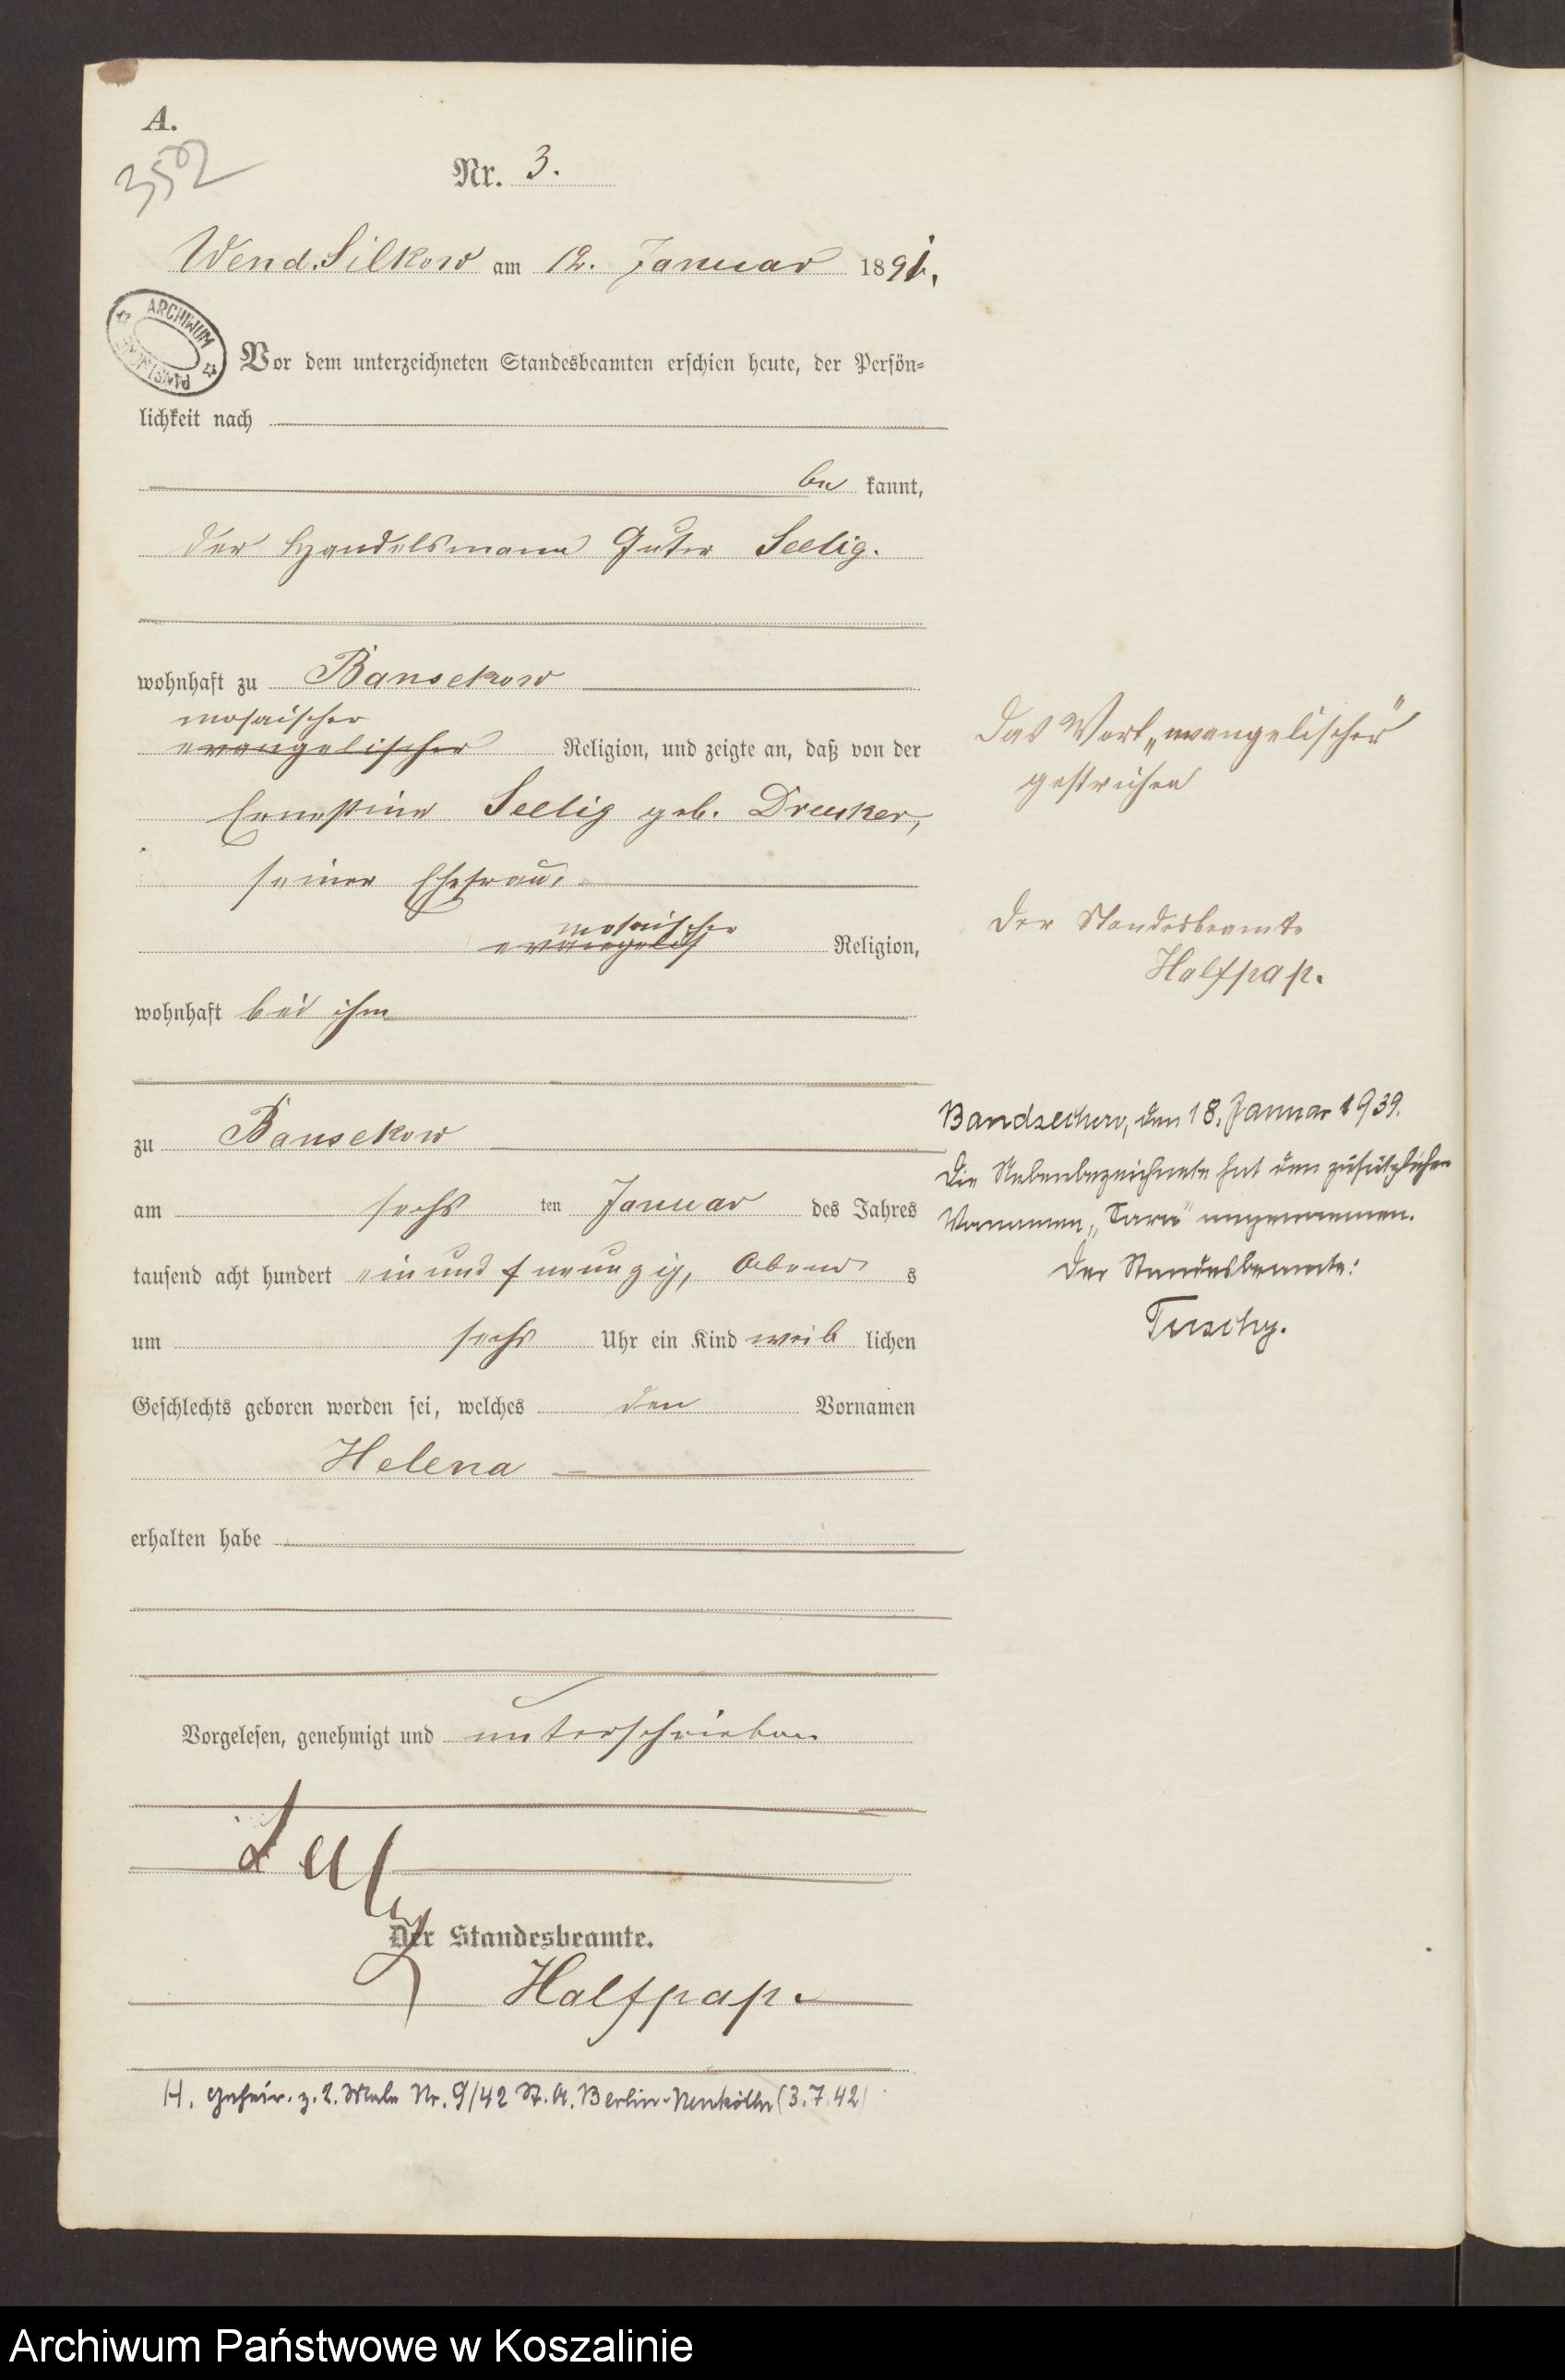 A.
352
Nr. 3.
Wend. Silkow am 12. Januar 1891.
ARCHIWUM PAŃSTWOWE
Vor dem unterzeichneten Standesbeamten erschien heute, der Persön=
lichkeit nach
be kannt,
der Handelsmann Seelig.
wohnhaft zu Bansekow
mosaischer
evangelischer Religion, und zeigte an, daß von der
Ernestine Seelig geb. Drucker,
seiner Ehefrau,
mosaischer
evangelisch Religion,
wohnhaft bei ihm
zu Bansekow
am sechs ten Januar des Jahres
tausend acht hundert ein und neunzig, Abend s
um sechs Uhr ein Kind weib lichen
Geschlechts geboren worden sei, welches den Vornamen
Helena
erhalten habe
Vorgelesen, genehmigt und unterschrieben
Seelig
Der Standesbeamte.
Halfpap.
H. geheir. z. 2. Male Nr. 9/42 St. A. Berlin-Neukölln (3.7.42)
Das Wort „evangelischer"
gestrichen
Der Standesbeamte
Halfpap.
Bandsechow, den 18. Januar 1939.
Die Nebenbezeichnete hat den zusätzlichen
Vornamen „Sara" angenommen.
Der Standesbeamte:
Tuschy.
Archiwum Państwowe w Koszalinie